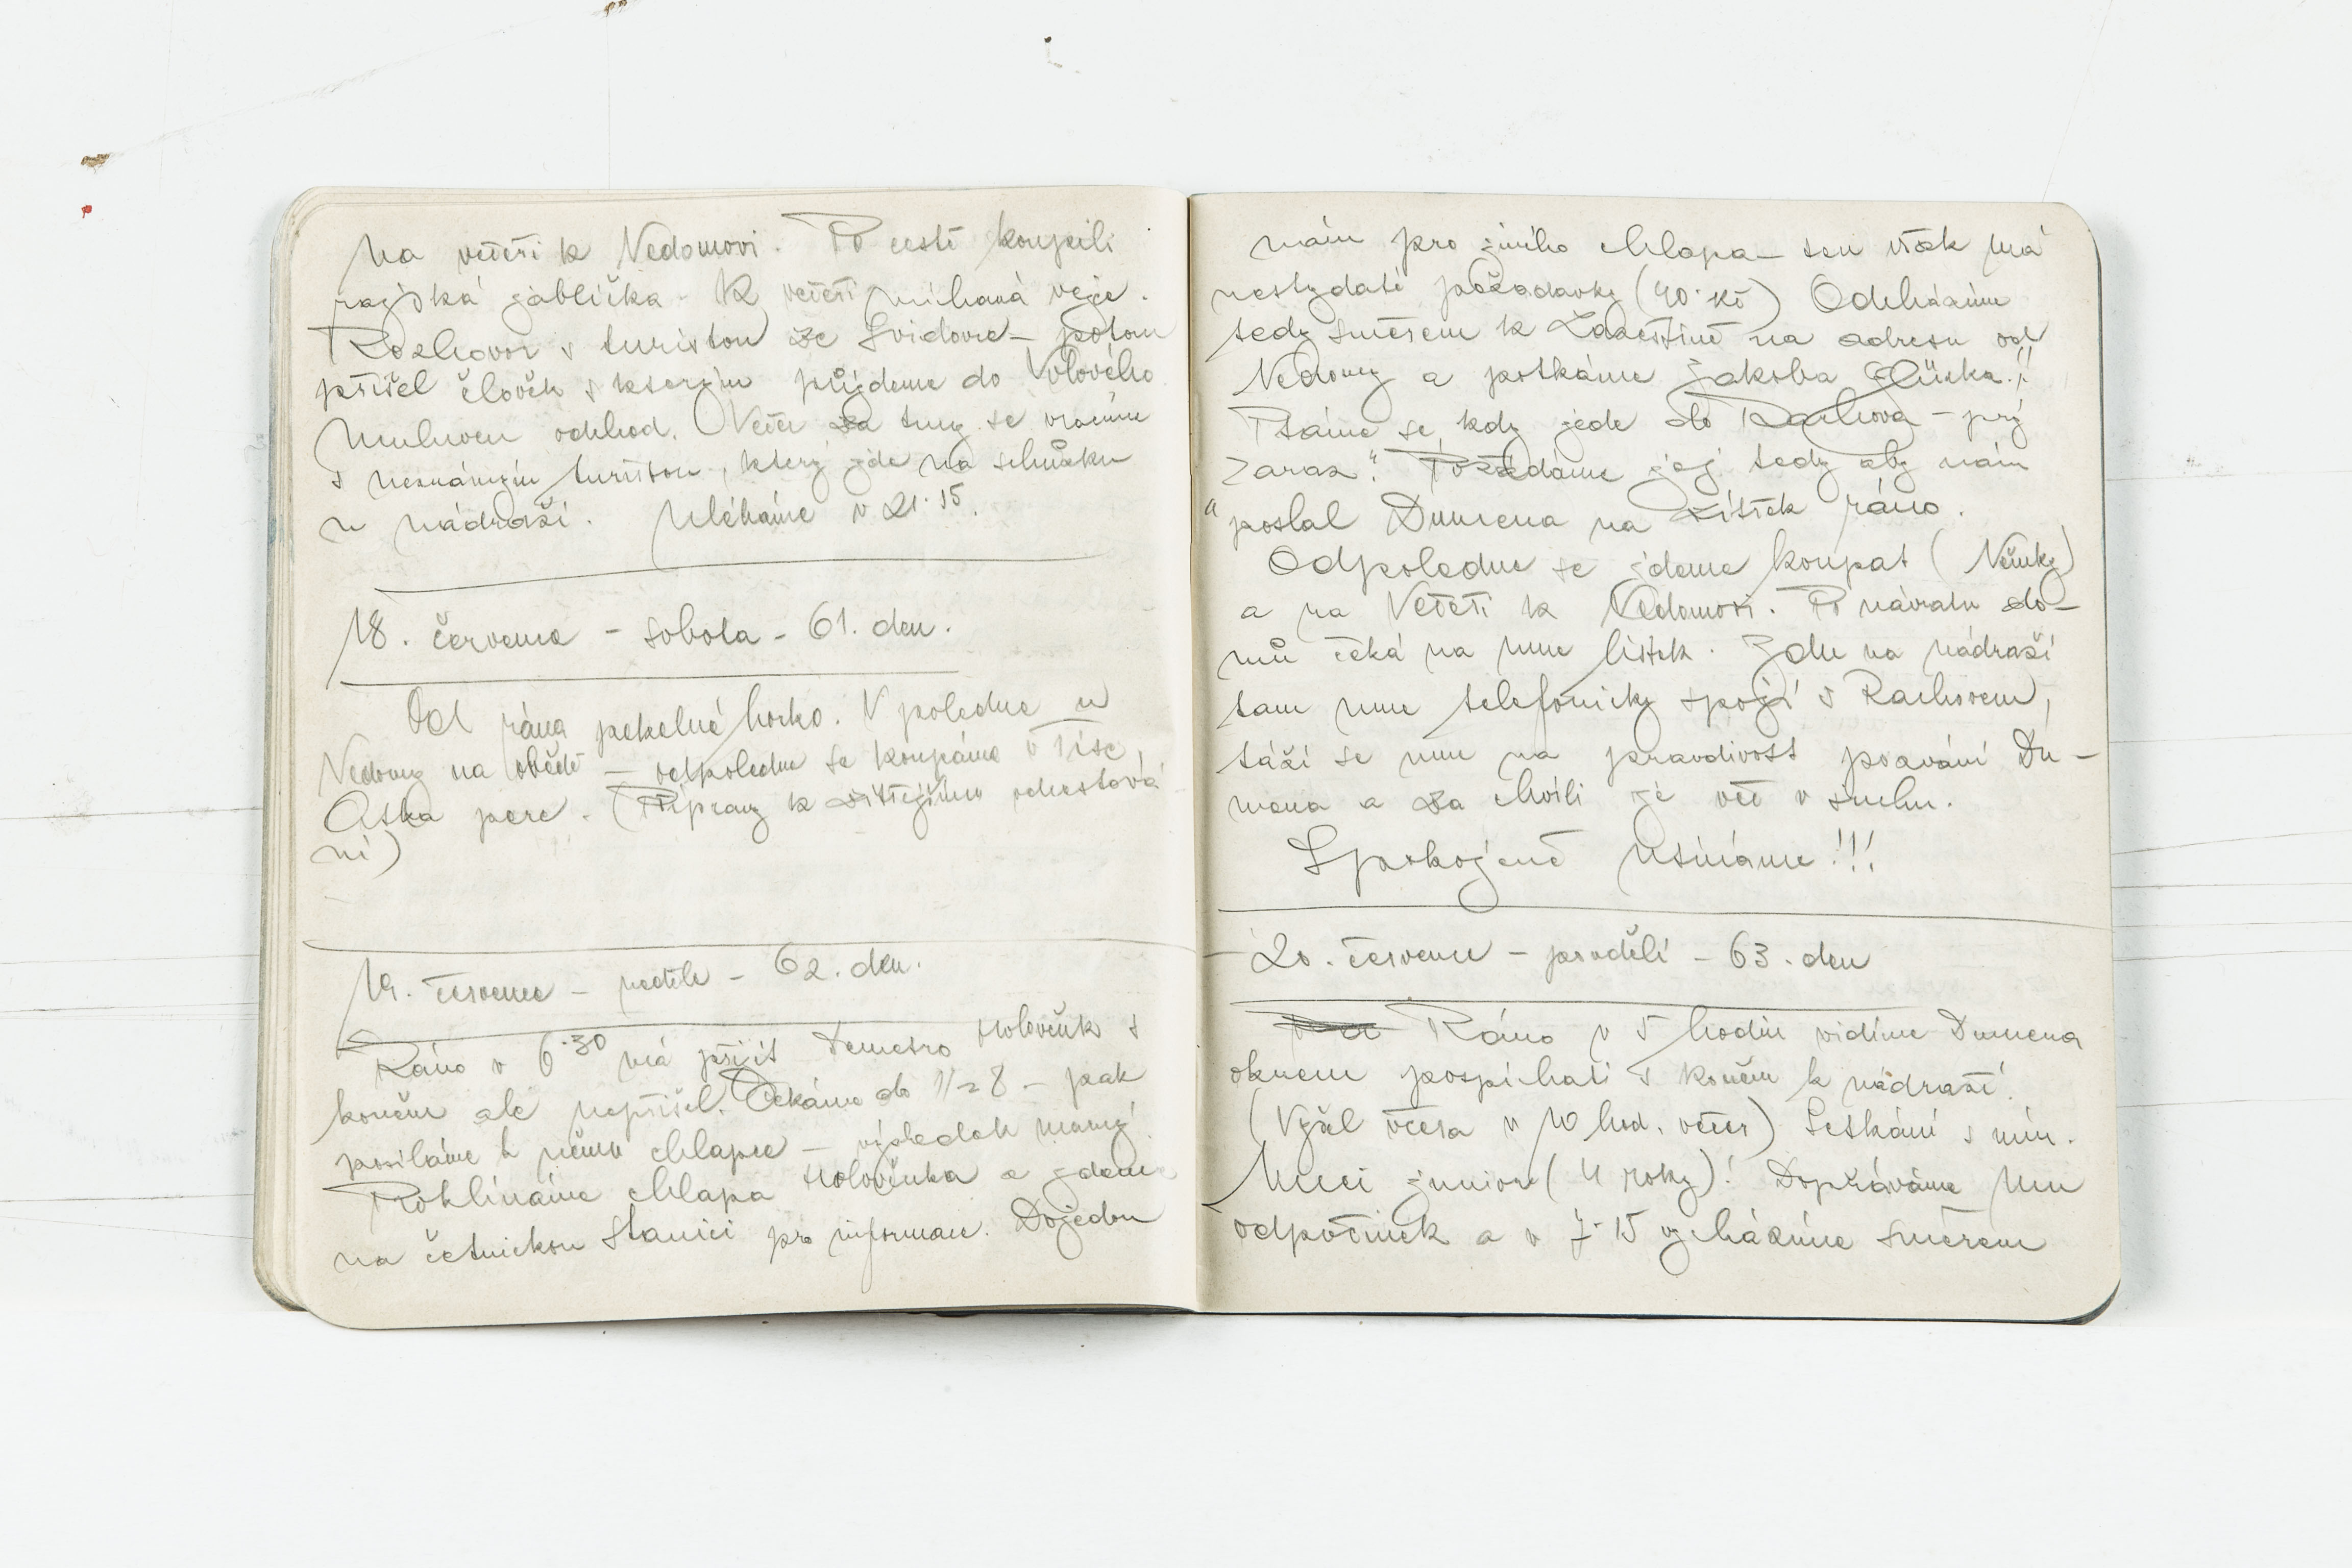 na večeři k Nedomovi. Po cestě koupili
rajská jablíčka. K večeři míchaná vejce.
Rozhovor s turistou ze Svidovce – potom
přišel člověk s kterým půjdeme do Volového
Umluven odchod. Večer za tmy se vracíme
s neznámým turistou, který jde na schůzku
u nádraží. Uléháme v 21.15.
18. července – sobota – 61. den.
Od rána pekelné horko. V poledne u
Nedomy na obědě – odpoledne se koupáme v Tise,
Aska pere. (Přípravy k zítřejšímu odcestová
ní)
19. července – neděle – 62. den.
Ráno v 6.30 má přijít Demetro Holovčuk s
koněm ale nepřišel. Čekáme do 1/2 8 – pak
posíláme k němu chlapce – výsledek marný.
Proklínáme chlapa Holovčuka a jdeme
na četnickou stanici pro informace. Dojedou
nám pro jiného chlapa – ten však má
nestydaté požadavky (40.Kč) Odcházíme
tedy směrem k na adresu od
Nedomy a potkáme Jakoba Glücka!!
Ptáme se, kdy jede do Rachova – prý
zaraz". Požádáme jej tedy aby nám
" poslal Dumena na zítřek ráno.
Odpoledne se jdeme koupat (Němky)
a na večeři k Nedomovi. Po návratu do-
mů čeká na mne lístek. Jdu na nádraží
tam mne telefonicky spojí s Rachovem,
táží se mne na pravdivost Du-
mena a za chvíli je vše v suchu.
Spokojeně usínáme!!!
20. července – pondělí – 63. den
Ráno v 5 hodin vidíme Dumena
oknem pospíchati s koněm k nádraží.
(Vyšel včera v 10 hod. večer) Setkání s ním.
Muci junior (4 roky)! Dopřáváme mu
odpočinek a v 7.15 vycházíme směrem